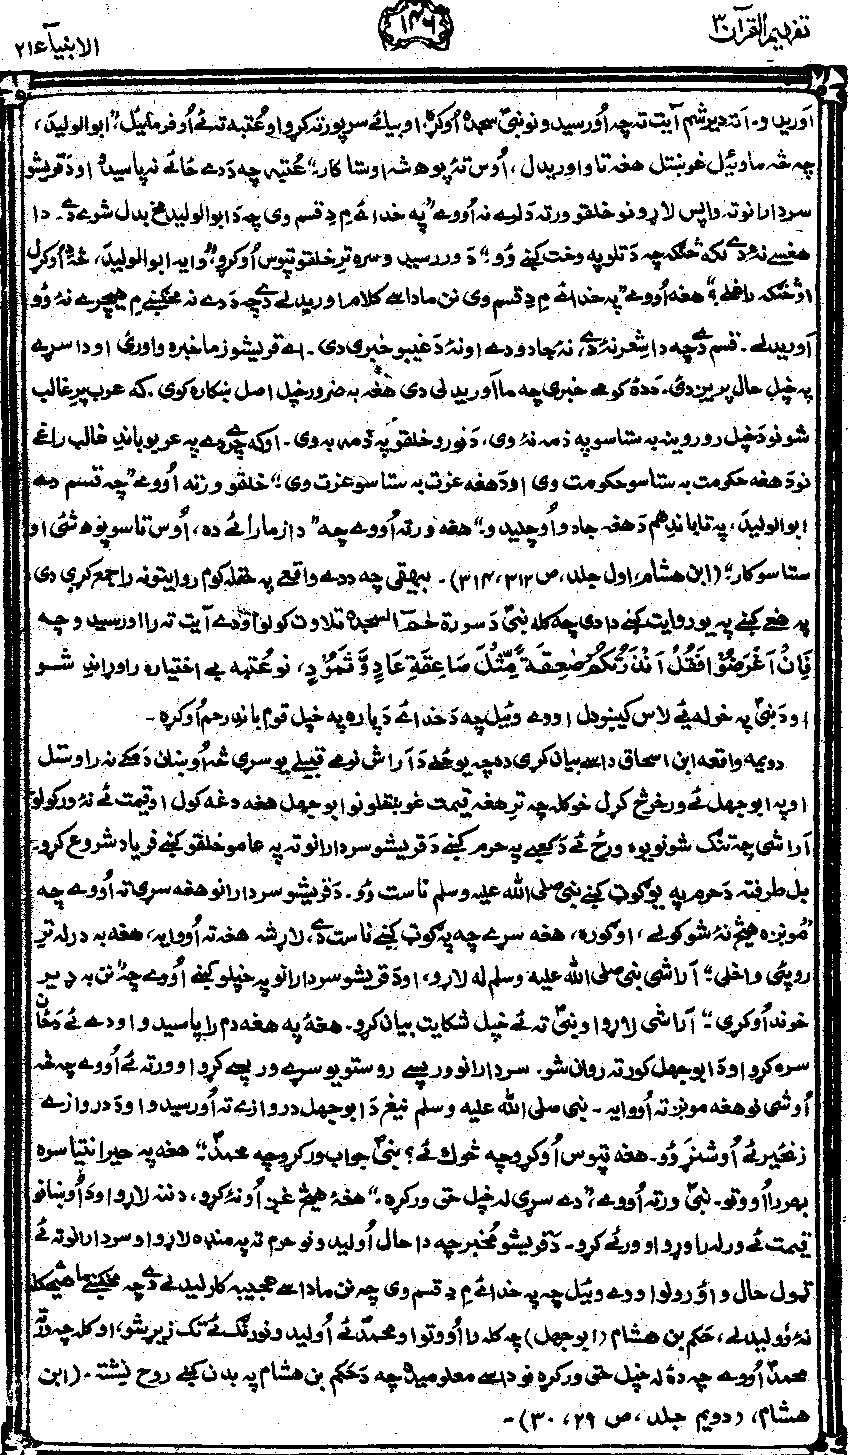 تفہیم القرآن ۳
۱۴۶
الانبیآء ۲۱
اوریدو۔ اتہ دیرشم آیت تہ چہ اُورسیدو نو نبیؐ سجدہ اُوکړہ او بیائے سر پورتہ کړو او عُتبہ تہ ئے اُوفرمائیل؛ "ابوالولید،
چہ څہ ماوئیل غوښتل هغہ تا واوریدل، اُوس تہ پوهہ شہ او ستا کار۔" عُتبہ چہ دَدے ځائے نہ پاسیدہ او دَ قریشو
سردارانو تہ واپس لاړو نو خلقو ورتہ دَ لرے نہ اُووے "پہ خدائے مِ دِ قسم وی چہ دَ ابوالولید مخ بدل شوے دے۔ دا
هغسے نہ دے لکہ څنګہ چہ دَ تلو پہ وخت کښے وُو۔" دَ وررسیدو سرہ ترِ خلقو تپوس اُوکړو "وایہ ابوالولید، څہ دِ اُوکړل
او څنګہ راغلے؟" هغہ اُووے "پہ خدائے مِ دِ قسم وی نن ما داسے کلام اوریدلے دے چہ دَدے نہ مخکښے مِ هیچرے نہ وُو
آوریدلے۔ قسم دے چہ دا شعر نہ دے، نہ جادو دے او نہ دَ غیبو خبرې دی۔ اے قریشو زما خبرہ واورئ او دا سړے
پہ خپل حال پریږدئ۔ دَدہ کومے خبرې چہ ما آوریدلی دی هغہ بہ ضرور خپل اصل ښکارہ کوی۔ کہ عرب پرِ غالب
شو نو دَ خپل رور وینہ بہ ستاسو پہ ذمہ نہ وی، دَ نورو خلقو پہ ذمہ بہ وی۔ او کہ چرے دے پہ عربو باندِ غالب راغے
نو دَ هغہ حکومت بہ ستاسو حکومت وی او دَ هغہ عزت بہ ستاسو عزت وی۔" خلقو ورتہ اُووے "چہ قسم دے
ابوالولید، پہ تا باندِ هم دَ هغہ جادو اُوچلیدو۔" هغہ ورتہ اُووے چہ "دا زما رائے دہ، اُوس تاسو پوهہ شئ او
ستاسو کار۔" (ابن هشام، اول جلد، ص ۳۱۳، ۳۱۴)۔ بیهقی چہ دَدے واقعے پہ حقلہ کوم روایتونہ را جمع کړی دی
پہ هغے کښے پہ یو روایت کښے دا دی چہ کلہ نبیؐ دَ سورۃ حٰمٓ السجدہ تلاوت کولو او دے آیت تہ را اورسیدو چہ
فَاِنْ اَعْرَضُوْا فَقُلْ اَنْذَرْتُكُمْ صٰعِقَةً مِّثْلَ صَاعِقَةِ عَادٍ وَّثَمُوْدٍ، نو عُتبہ بے اختیارہ راوړاندِ شو
او دَ نبیؐ پہ خولہ ئے لاس کیښودل او وے وئیل چہ دَ خدائے دَ پارہ پہ خپل قوم باندِ رحم اُوکړہ۔
دویمہ واقعہ ابن اسحاق داسے بیان کړې دہ چہ یو ځلے دَ آراش نومے قبیلے یو سړی څہ اُوښان دَ مکے نہ راوستل
او پہ ابوجهل ئے ورخرڅ کړل خو کلہ چہ ترِ هغہ قیمت غوښتلو نو ابوجهل هغہ دغہ کول او قیمت ئے نہ ورکولو۔
آراشی چہ تنګ شو نو یوہ ورځ ئے دَ کعبے پہ حرم کښے دَ قریشو سردارانو تہ پہ عامو خلقو کښے فریاد شروع کړو۔
بل طرفتہ دَ حرم پہ یو ګوټ کښے نبی صلی اللہ علیہ وسلم ناست وُو۔ دَ قریشو سردارانو هغہ سړی تہ اُووے چہ
"مُونږہ هیڅ نہ شو کولے، اوګورہ، هغہ سړے چہ پہ ګوټ کښے ناست دے، لاړشہ هغہ تہ اُووایہ، هغہ بہ درلہ ترِ
روپئ واخلی۔" آراشی نبی صلی اللہ علیہ وسلم لہ لاړو، او دَ قریشو سردارانو پہ خپلو کښے اُووے چہ "نن بہ ډیر
خوند اُوکړی۔" آراشی لاړو او نبیؐ تہ ئے خپل شکایت بیان کړو۔ هغہ پہ هغہ دم را پاسیدو او دے ئے دَ ځان
سرہ کړو او دَ ابوجهل کور تہ روان شو۔ سردارانو ورپسے روستو یو سړے ورپسے کړو او ورتہ ئے اُووے چہ څہ
اُوشی نو هغہ مونږ تہ اُووایہ۔ نبی صلی اللہ علیہ وسلم نیغ دَ ابوجهل دروازے تہ اُورسیدو او دَ دروازے
زنځیر ئے اُوشنړوو۔ هغہ تپوس اُوکړو چہ څوك ئے؟ نبیؐ جواب ورکړو چہ محمدؐ۔" هغہ پہ حیرانتیا سرہ
بهر را اُووتو۔ نبیؐ ورتہ اُووے، "دے سړی لہ خپل حق ورکړہ۔" هغہ هیڅ غږ اُونہ کړو، دننہ لاړو او دَ اُوښانو
قیمت ئے ورلہ راوړو او ورئے کړو۔ دَ قریشو مُخبر چہ دا حال اُولیدو نو حرم تہ پہ منډہ لاړو او سردارانو تہ ئے
ټول حال واؤرولو او وے وئیل چہ پہ خدائے مِ دِ قسم وی چہ نن ما داسے عجیبہ کار لیدلے دے چہ مخکښے ما هیچکلہ
نہ وُو لیدلے، حَکم بن هشام (ابوجهل) چہ کلہ را اُووتو او محمدؐ ئے اُولیدو نو رنګ ئے تک زیړ شو، او کلہ چہ ورتہ
محمدؐ اُووے چہ دہ لہ خپل حق ورکړہ نو داسے معلومیدہ چہ دَ حَکم بن هشام پہ بدن کښے روح نیشتہ۔ (ابن
هشام، دویم جلد، ص ۲۹، ۳۰)۔